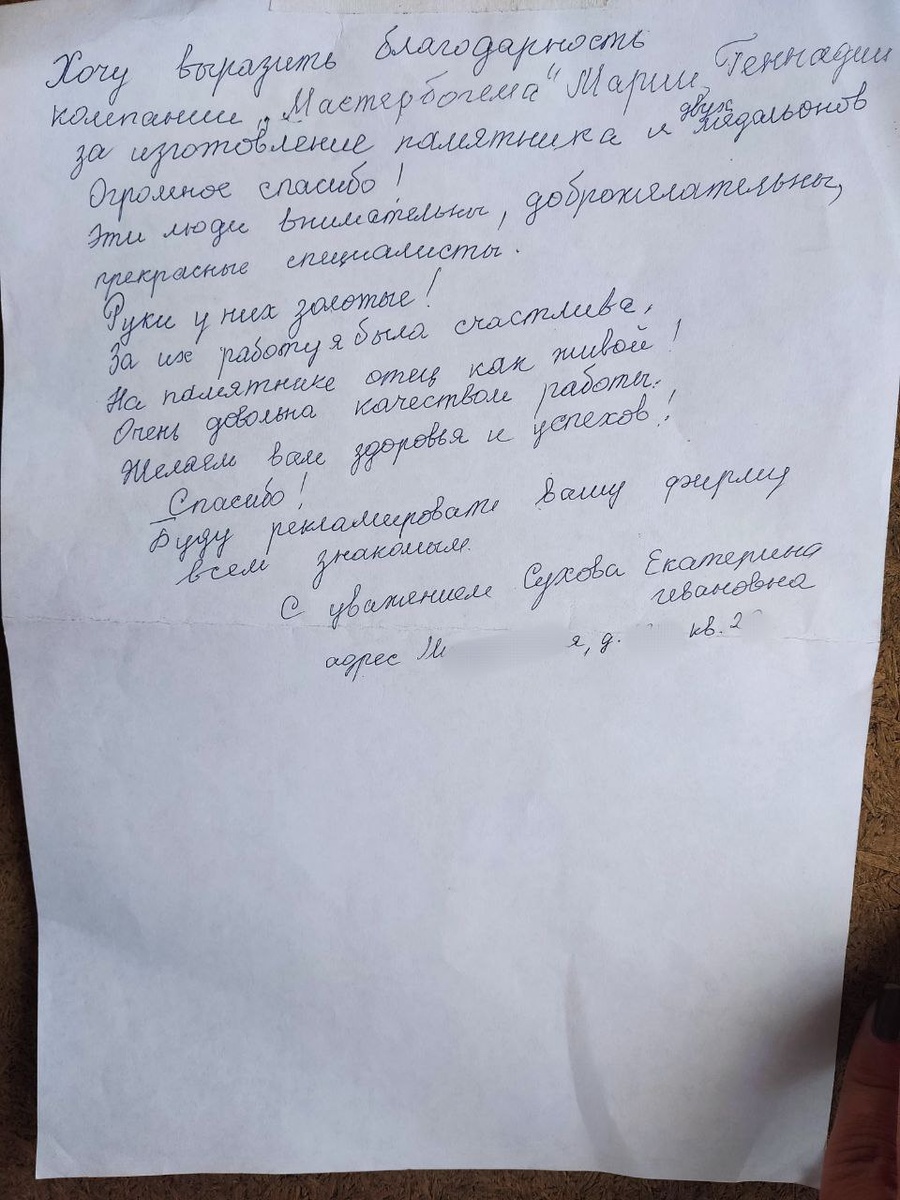 Хочу выразить благодарность
компании „Мастербогема" Марии, Геннадии
за изготовление памятника и двух мядальонов
Огромное спасибо!
Эти люди внимательны, доброжелательны,
прекрасные специалисты.
Руки у них золотые!
За их работу я была счастлива,
На памятнике отец как живой!
Очень довольна качеством работы.
Желаем вам здоровья и успехов!
Спасибо!
Буду рекламировать вашу фирму
всем знакомым.
С уважением Сухова Екатерина
Ивановна
адрес М я, д. кв. 2